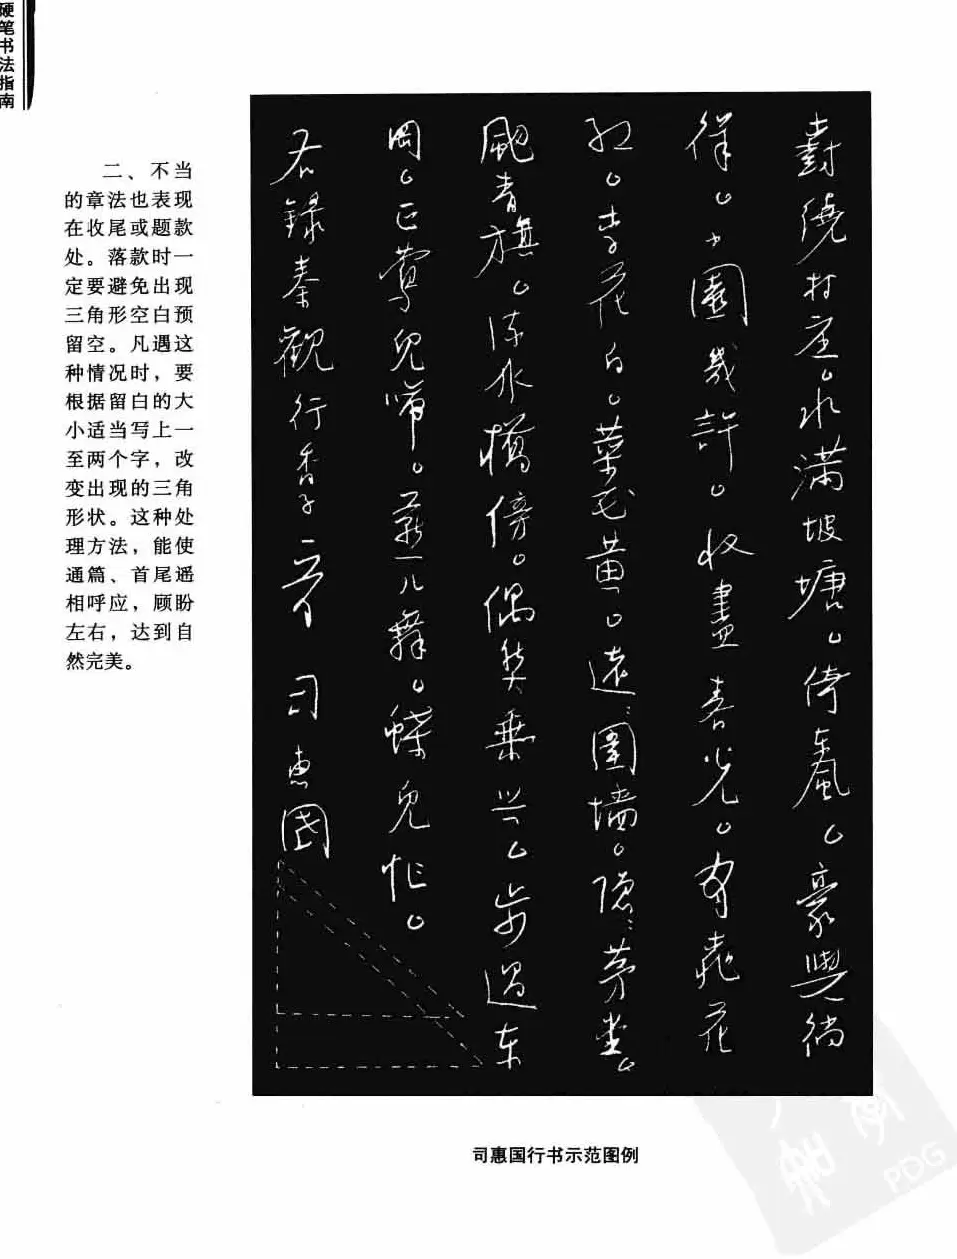 硬笔书法指南
二、不当
的章法也表现
在收尾或题款
处。落款时一
定要避免出现
三角形空白预
留空。凡遇这
种情况时，要
根据留白的大
小适当写上一
至两个字，改
变出现的三角
形状。这种处
理方法，能使
通篇、首尾遥
相呼应，顾盼
左右，达到自
然完美。
樹繞村庄。水满坡塘。倚東風。豪興徜
徉。小園幾許。收盡春光。有桃花
红。李花白。菜花黄。遠:圍墙。隐:茅堂。
颺青旗。流水橋傍。偶然乘兴。步過东
岡。正鶯兒啼。燕儿舞。蝶兒忙。
右錄秦觀行香子一首 司惠國
司惠国行书示范图例
PDG